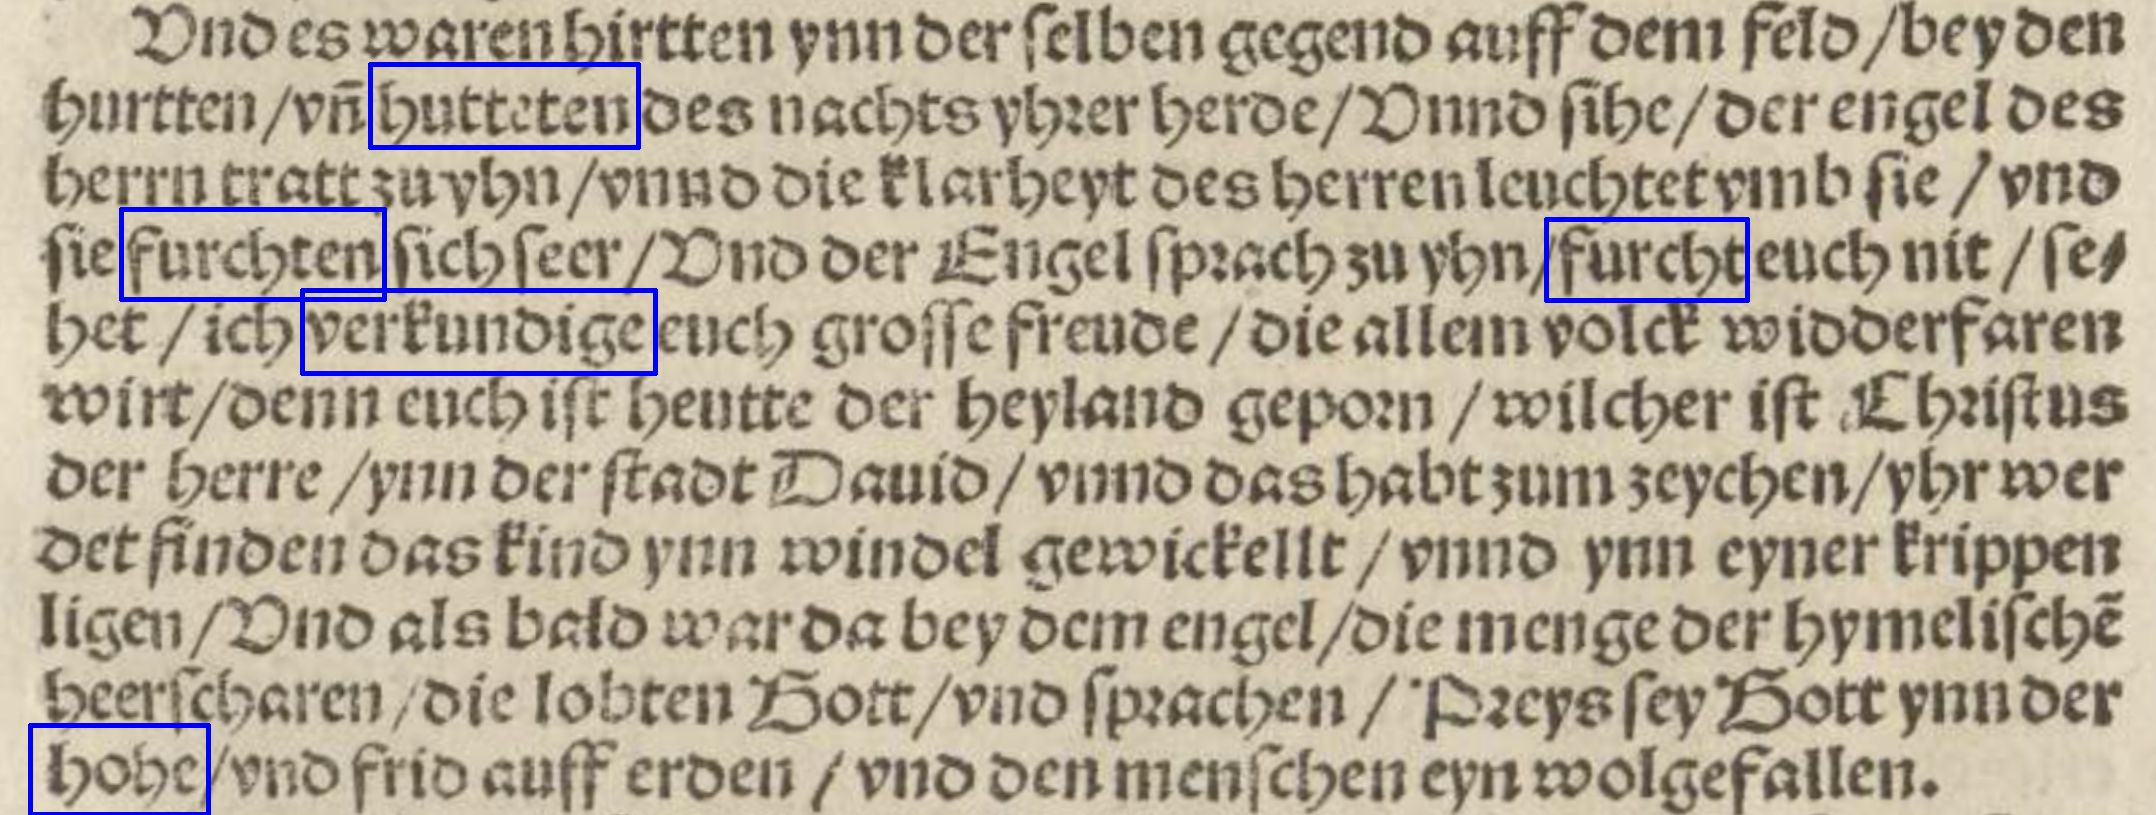 Vnd es waren hirtten ynn der ſelben gegend auff dem feld /bey den
hurtten /vn̄ hutteten des nachts yhꝛer herde/Vnnd ſihe/ der engel des
herrn tratt zu yhn /vnnd die klarheyt des herren leuchtet vmb ſie / vnd
ſie furchten ſich ſeer /Vnd der Engel ſpꝛach zu yhn/furcht euch nit / ſe⸗
het / ich verkundige euch groſſe freude / die allem volck widderfaren
wirt/denn euch iſt heutte der heyland gepoꝛn / wilcher iſt Chꝛiſtus
der herre /ynn der ſtadt Dauid/ vnnd das habt zum zeychen/yhr wer
det finden das kind ynn windel gewickellt / vnnd ynn eyner krippen
ligen /Vnd als bald war da bey dem engel/die menge der hymeliſchē
heerſcharen /die lobten Gott /vnd ſpꝛachen / Pꝛeys ſey Gott ynn der
hohe/vnd frid auff erden / vnd den menſchen eyn wolgefallen.